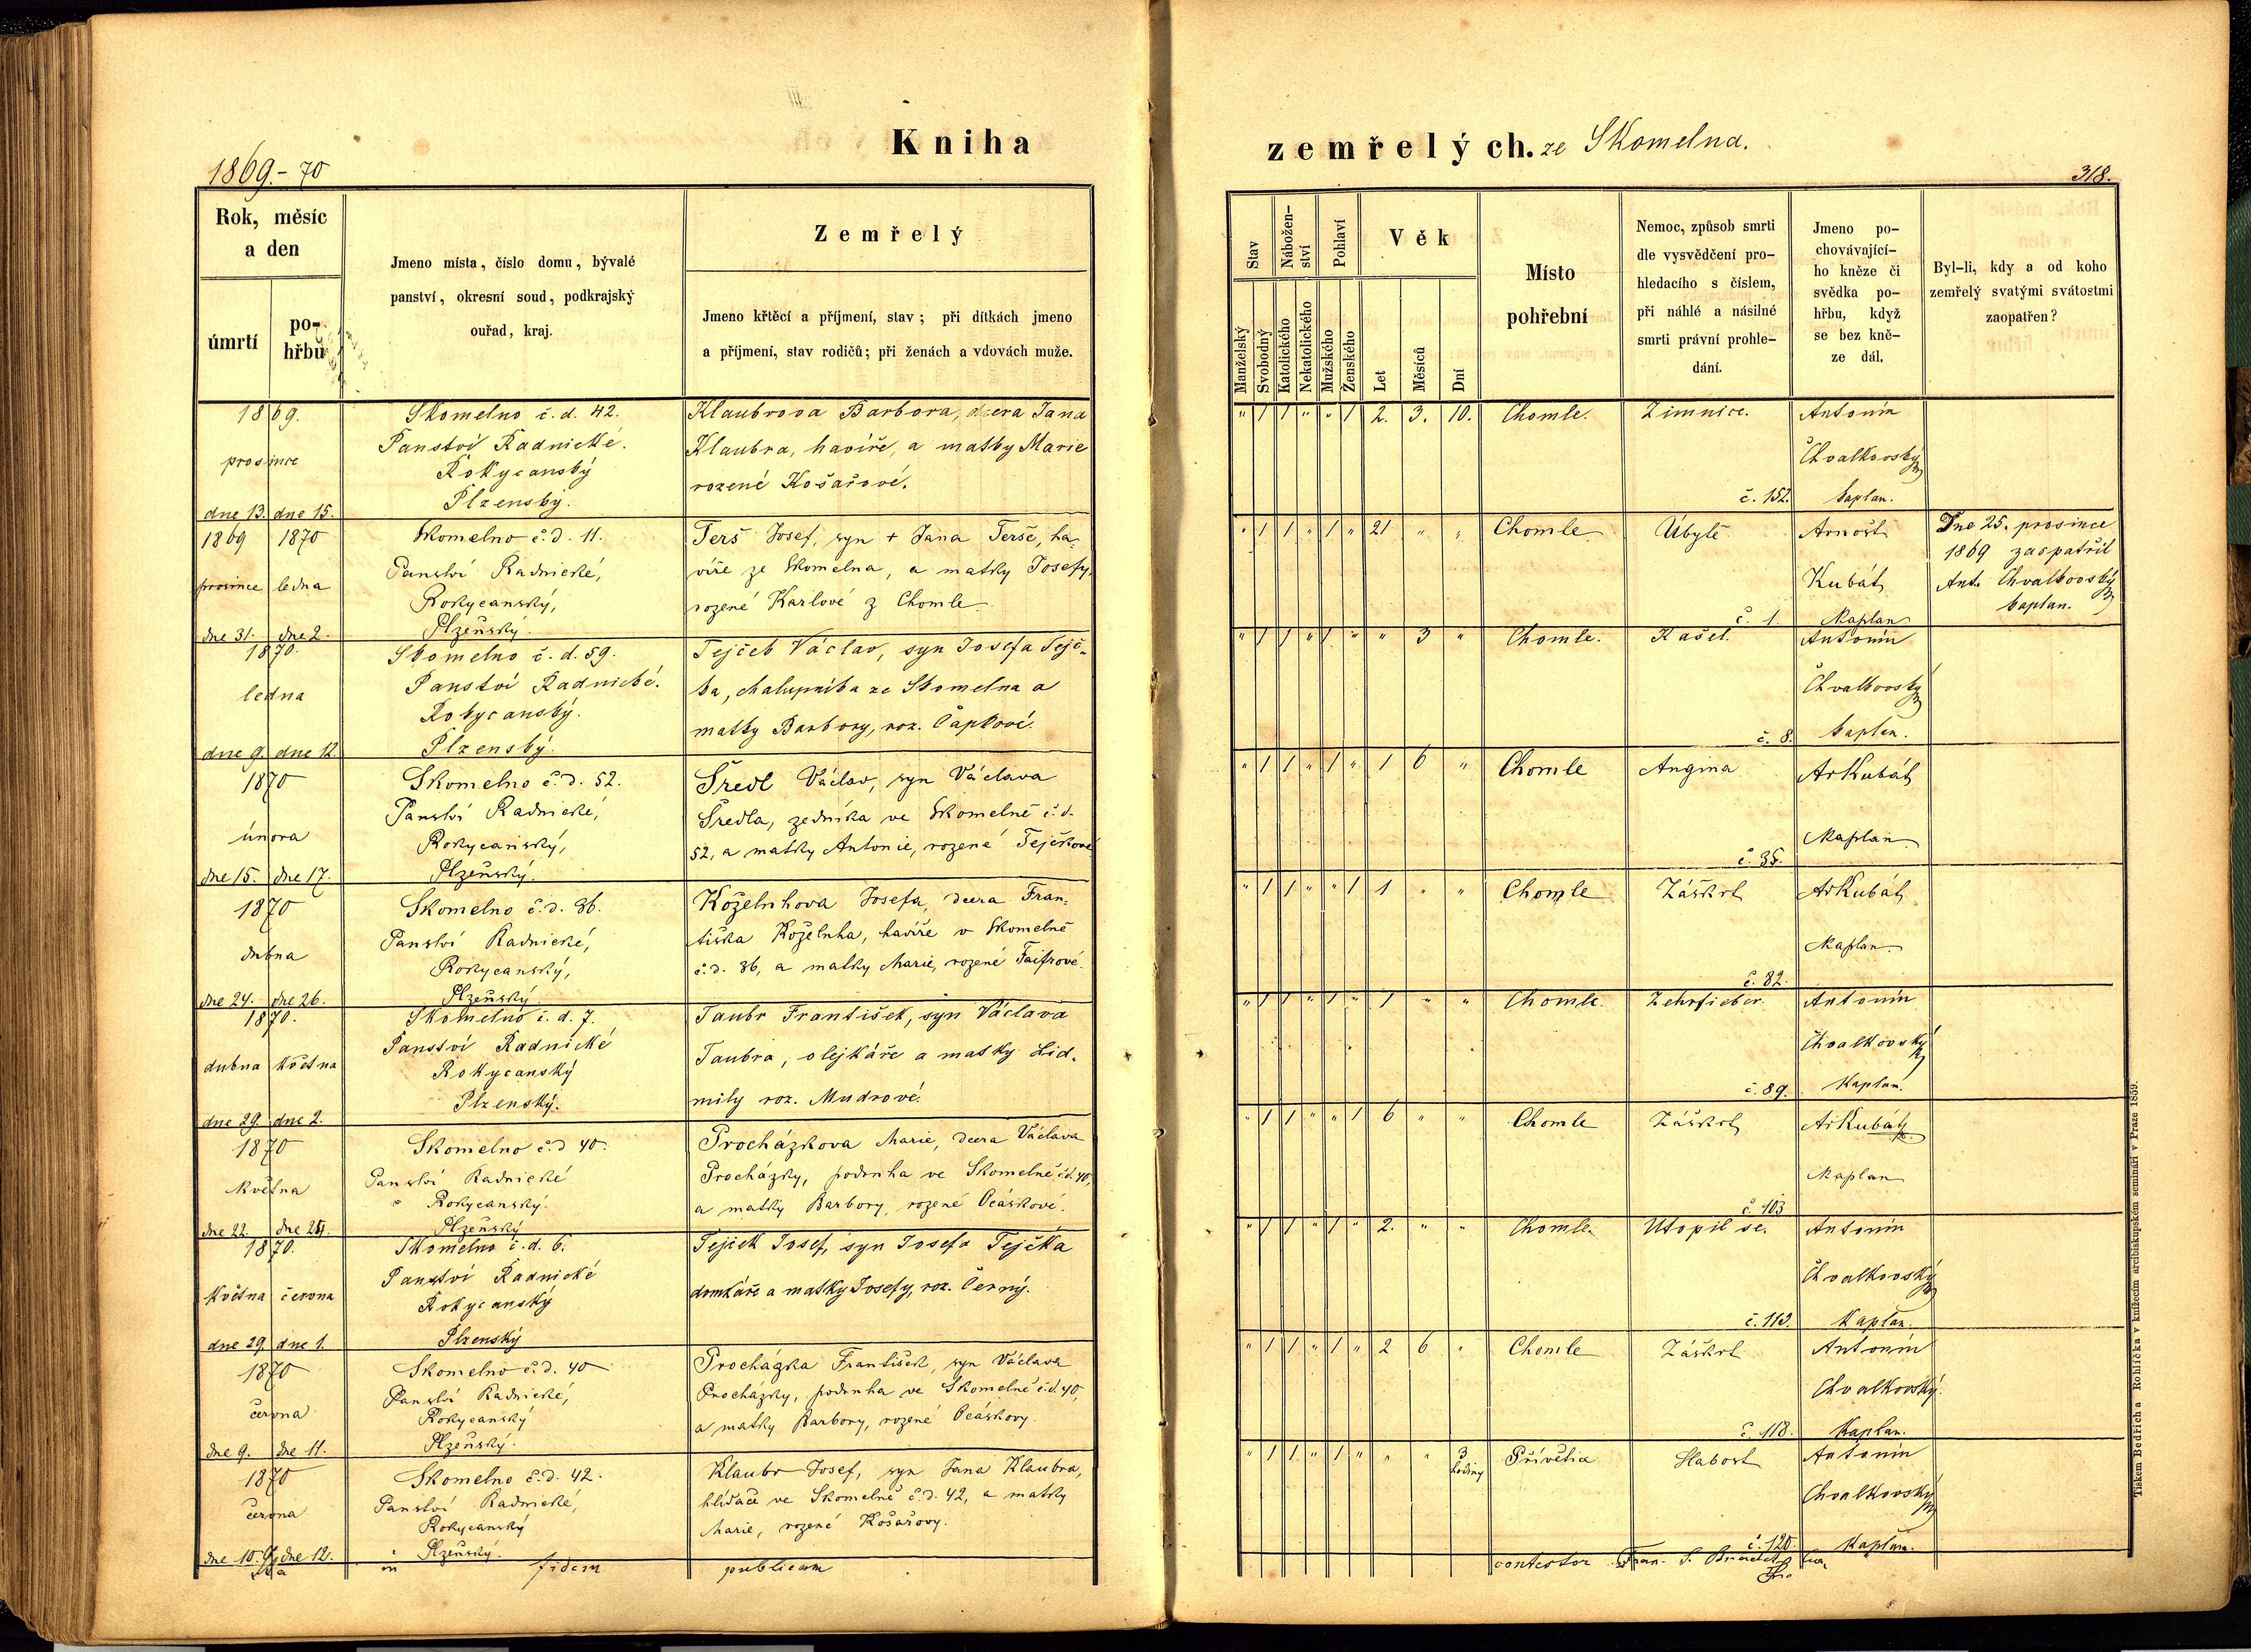 1869.-70
Kniha
zemřelých. ze Skomelna.
318.
Rok, měsíc
a den
úmrtí
po-
hřbu
Jmeno místa, číslo domu, bývalé
panství, okresní soud, podkrajský
ouřad, kraj.
Zemřelý
Jmeno křtěcí a příjmení, stav; při dítkách jmeno
a příjmení, stav rodičů; při ženách a vdovách muže.
Stav
Nábožen-
ství
Pohlaví
Věk
Manželský
Svobodný
Katolického
Nekatolického
Mužského
Ženského
Let
Měsíců
Dní
Místo
pohřební
Nemoc, způsob smrti
dle vysvědčení pro-
hledacího s číslem,
při náhlé a násilné
smrti právní prohle-
dání.
Jmeno po-
chovávající-
ho kněze či
svědka po-
hřbu, když
se bez kně-
ze dál.
Byl-li, kdy a od koho
zemřelý svatými svátostmi
zaopatřen?
1869.
prosince
dne 13. dne 15.
Skomelno č. d. 42.
Panství Radnické.
Rokycanský
Plzenský.
Klaubrova Barbora, dcera Jana
Klaubra, havíře, a matky Marie
rozené Košařové.
" 1 1 " " 1 2. 3. 10. Chomle. Zimnice.
č. 152.
Antonín
Chvalkovský
kaplan.
1869 1870
prosince ledna
dne 31. dne 2.
Skomelno č. d. 11.
Panství Radnické,
Rokycanský,
Plzeňský.
Terš Josef, syn + Jana Terše, ha-
víře ze Skomelna, a matky Josefy,
rozené Karlové z Chomle
" 1 1 " 1 " 21 " " Chomle Úbytě
č. 1.
Arnošt
Kubát
Kaplan
Dne 25. prosince
1869 zaopatřil
Ant. Chvalkovský
kaplan.
1870.
ledna
dne 9. dne 12.
Skomelno č. d. 59.
Panství Radnické.
Rokycanský.
Plzenský.
Tejček Václav, syn Josefa Tejč-
ka, chalupníka ze Skomelna a
matky Barbory, roz. Čapkové.
" 1 1 " 1 " " 3 " Chomle. Kašel.
č. 8.
Antonín
Chvalkovský
kaplan.
1870
února
dne 15. dne 17.
Skomelno č. d. 52.
Panství Radnické,
Rokycanský,
Plzeňský.
Šredl Václav, syn Václava
Šredla, zedníka ve Skomelně č. d.
52, a matky Antonie, rozené Tejčkové
" 1 1 " 1 " 1 6 " Chomle Angina
č. 35.
ArKubát
Kaplan
1870
dubna
dne 24. dne 26.
Skomelno č. d. 36.
Panství Radnické,
Rokycanský,
Plzeňský.
Koželuhova Josefa, dcera Fran-
tiška Koželuha, havíře v Skomelně
č. d. 36, a matky Marie, rozené Faifrové.
" 1 1 " " 1 1 " " Chomle Záškrt
č. 82.
ArKubát
Kaplan
1870.
dubna Května
dne 29. dne 2.
Skomelno č. d. 7.
Panství Radnické
Rokycanský
Plzenský.
Taubr František, syn Václava
Taubra, olejkáře a matky Lid-
mily roz. Mudrové.
" 1 1 " 1 " 1 " " Chomle. Zehrfieber.
č. 89.
Antonín
Chvalkovský
Kaplan.
1870
Května
dne 22.
Skomelno č. d 40.
Panství Radnické
Rokycanský.
Plzeňský
Procházkova Marie, dcera Václava
Procházky, podruha ve Skomelně č. d. 40,
a matky Barbory, rozené Ocáskové.
" 1 1 " " 1 6 " " Chomle Záškrt
č 103
ArKubát
Kaplan
1870.
Května června
dne 29. dne 1.
Skomelno č. d. 6.
Panství Radnické
Rokycanský
Plzenský
Tejček Josef, syn Josefa Tejčka
domkáře a matky Josefy, roz. Černý.
" 1 1 " 1 " 2. " " Chomle. Utopil se.
č. 113.
Antonín
Chvalkovský
Kaplan.
1870
června
dne 9. dne 11.
Skomelno č. d. 40
Panství Radnické,
Rokycanský
Plzeňský.
Procházka František, syn Václava
Procházky, podruha ve Skomelně č. d. 40,
a matky Barbory, rozené Ocáskovy.
" 1 1 " 1 " 2 6 " Chomle Záškrt
č. 118.
Antonín
Chvalkovský.
Kaplan.
1870
června
dne 10. dne 12.
Skomelno č. d. 42.
Panství Radnické,
Rokycanský
Plzeňský.
Klaubr Josef, syn Jana Klaubra,
hlídače ve Skomelně č. d. 42, a matky
Marie, rozené Košařovy.
" 1 1 " 1 " " " 3 hodiny Přívětice Slabost
č. 120.
Antonín
Chvalkovský
Kaplan.
in fidem publicam
contestor Fran. S.
Tiskem Bedřicha Rohlíčka v knížecím arcibiskupském semináři v Praze 1859.